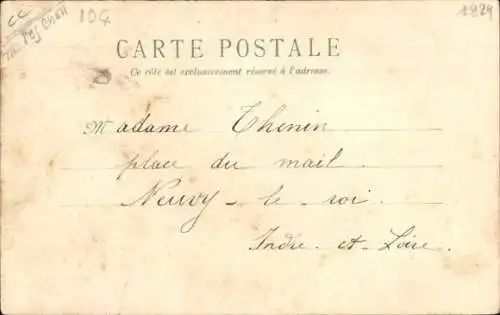 CC
104
1924
CARTE POSTALE
Ce côté est exclusivement réservé à l'adresse.
Madame Thenin
place du mail.
Neuvy-le-roi.
Indre-et-Loire.